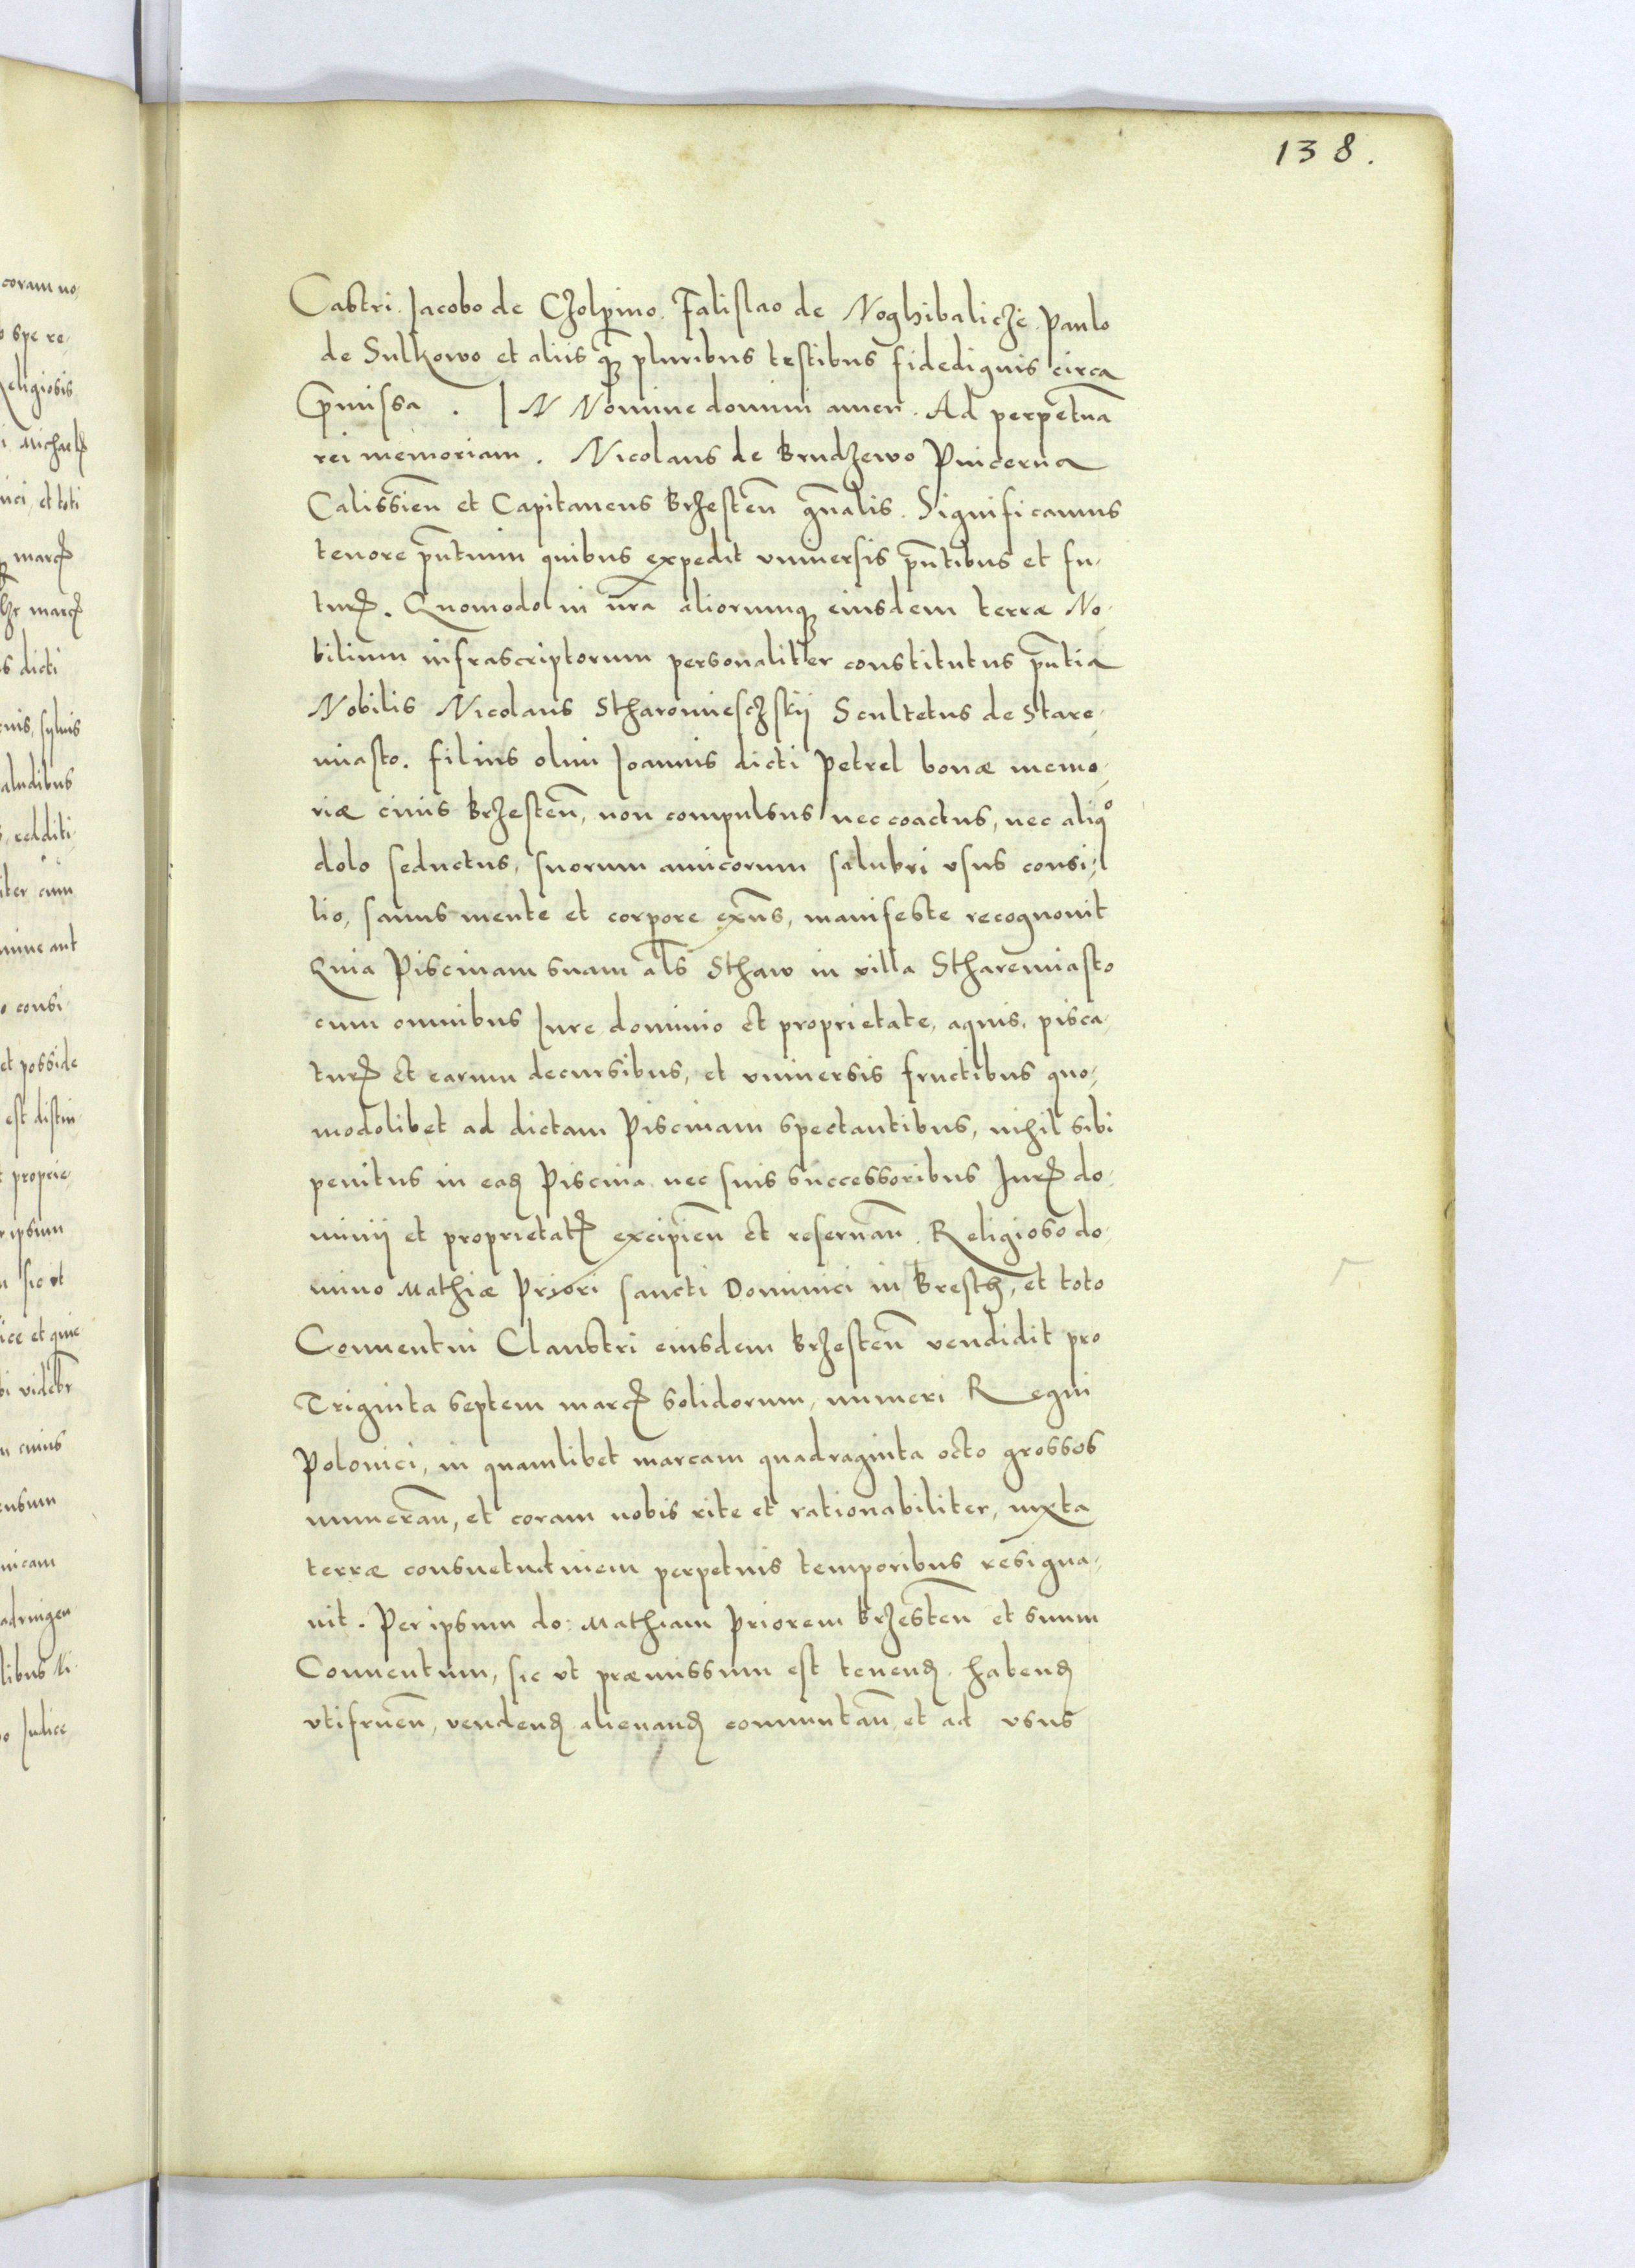 138.
Castri. Jacobo de Czolpino. Falislao de Noghibalicze. Paulo
de Sulkowo et aliis q̃ꝫ pluribus testibus fidedignis circa
p̃missa. IN Nomine domini amen. Ad perpetuã
rei memoriam. Nicolaus de Brudzewo Pincerna
Calissieñ et Capitaneus Brzesteñ gñalis. Significamus
tenore p̃ntium quibus expedit vniuersis p̃ntibus et fu-
turꝭ. Quomodo in nr̃a aliorumqꝫ eiusdem terræ No-
bilium infrascriptorum personaliter constitutus p̃ntia
Nobilis Nicolaus Stharomiesczskij Scultetus de Stare-
miasto. filius olim Joannis dicti Petrel bonæ memo-
riæ ciuis Brzesteñ, non compulsus nec coactus, nec aliqº
dolo seductus, suorum amicorum salubri vsus consi-
lio, sanus mente et corpore exñs, manifeste recognouit
Quia Piscinam suam als̃ Sthaw in villa Stharemiasto
cum omnibus Iure dominio et proprietate, aquis, pisca-
turꝭ et earum decursibus, et vniuersis fructibus quo-
modolibet ad dictam Piscinam spectantibus, nihil sibi
penitus in eaꝫ Piscina nec suis successoribus Iurꝭ do-
minij et proprietatꝭ excipieñ et reseruañ. Religioso do-
mino Mathiæ Priori sancti Dominici in Bresth, et toto
Conuentui Claustri eiusdem Brzesteñ vendidit pro
Triginta septem marcꝭ solidorum, numeri Regni
Polonici, in quamlibet marcam quadraginta octo grossos
numerañ, et coram nobis rite et rationabiliter, iuxta
terræ consuetudinem perpetuis temporibus resigna-
uit. Per ipsum do: Mathiam Priorem Brzesteñ et suum
Conuentum, sic vt præmissum est tenenꝫ. habenꝫ
vtifrueñ, vendenꝫ alienanꝫ commutañ et ad vsus